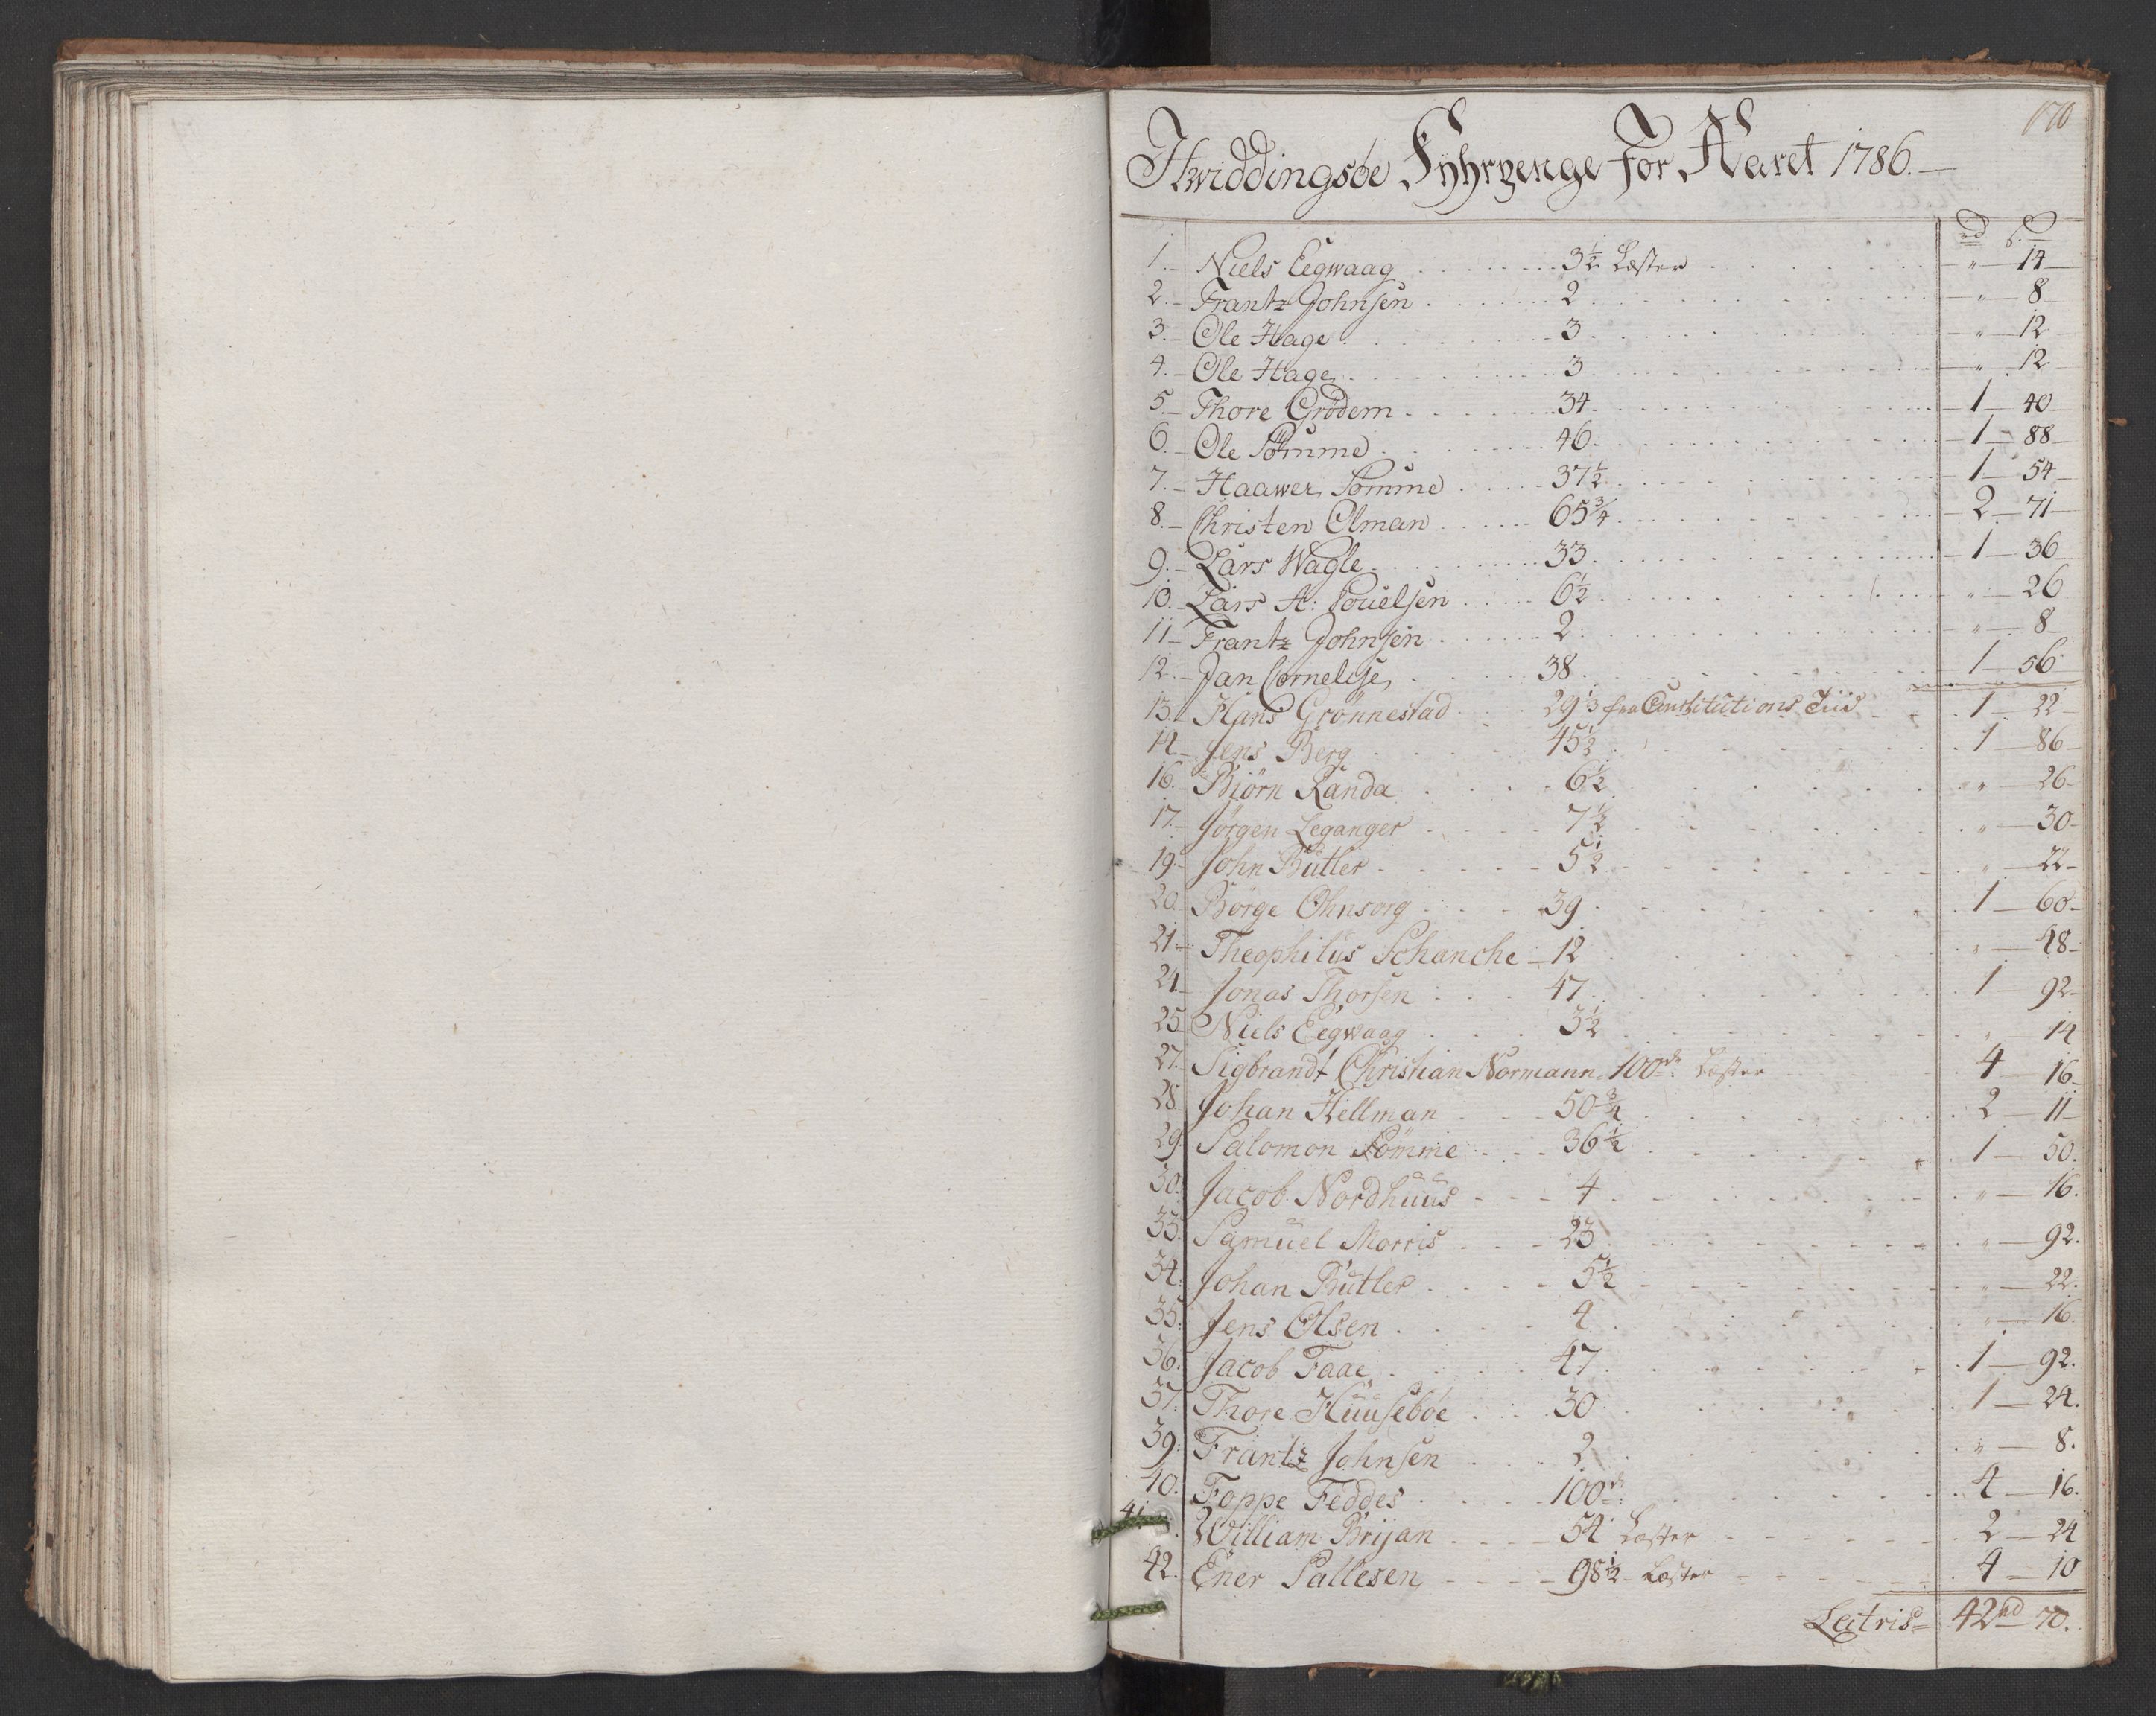 170
Hwiddingsøe Fyhrpenge for Aaret 1786.
rd ß
1. Niels Eegwaag 3½ Læster " 14
2. Frantz Johnsen 2 " 8
3. Ole Hage 3 " 12
4. Ole Hage 3 " 12
5. Thore Grödem 34 1 40
6. Ole Sömme 46 1 88
7. Haawer Sömme 37½ 1 54
8. Christen Olman 65¾ 2 71
9. Lars Wagle 33 1 36
10. Lars A: Pouelsen 6½ " 26
11 Frantz Johnsen 2 " 8
12. Jan Cornelise 38 1 56
13. Hans Grönnestad 29⅓ fra Constitutions Tiid 1 22
14 Jens Berg 45½ 1 86
16. Biörn Randa 6½ " 26
17. Jörgen Leganger 7½ " 30
19. John Butler 5½ " 22
20. Börge Ohnsorg 39 1 60
21 Theophilus Schanche 12 " 48
24. Jonas Thorsen 47 1 92
25 Niels Eegwaag 3½ " 14
27. Sigbrandt Christian Normann 100de Læster 4 16
28. Johan Hellman 50¾ 2 11
29. Salomon Sömme 36½ 1 50.
30. Jacob Nordhuus 4 " 16.
33. Samuel Morris 23 " 92.
34. Johan Butler 5½ " 22.
35. Jens Olsen 4 " 16.
36. Jacob Faae 47 1 92.
37. Thore Huusebøe 30 1 24.
39. Frantz Johnsen 2 " 8.
40. Foppe Feddes 100de 4 16.
41. William Brijan 54 Læster 2 24
42. Ener Pallesen 98½ Læster 4 10
Latris 42rd 70.